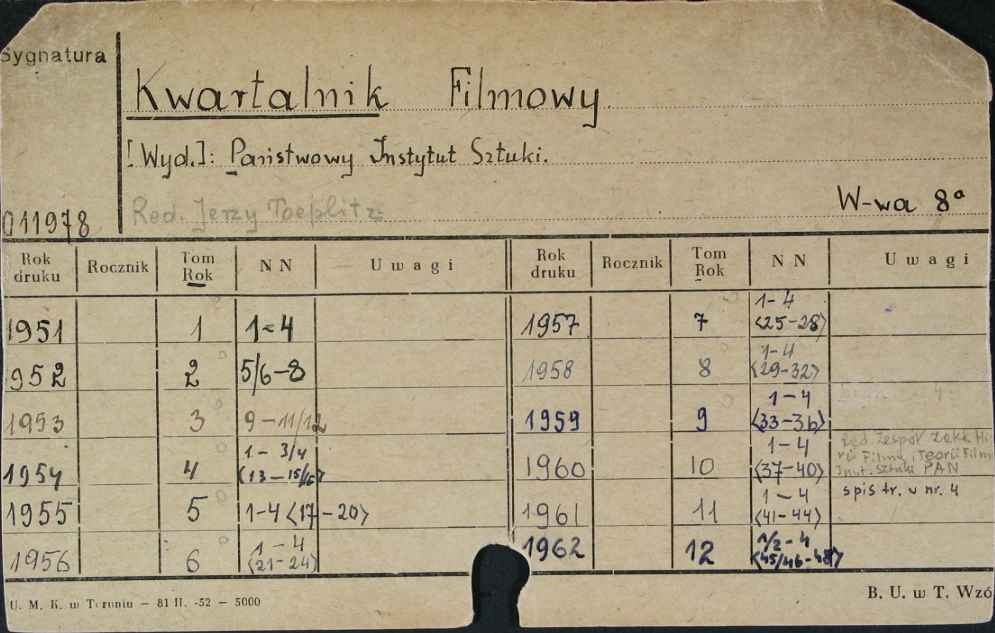 Sygnatura
Kwartalnik Filmowy.
[Wyd.]: Państwowy Instytut Sztuki.
W-wa 8°
011978 Red. Jerzy Toeplitz
Rok druku Rocznik Tom Rok NN Uwagi Rok druku Rocznik Tom Rok NN Uwagi
1951 1 1-4 1957 7 1-4 <25-28>
1952 2 5/6-8 1958 8 1-4 <29-32>
1953 3 9-11/12 1959 9 1-4 <33-36>
1954 4 1-3/4 <13-15/16> 1960 10 1-4 <37-40> Red. Zespół Filmu i Teorii Filmu Inst. Sztuki PAN
1955 5 1-4 <17-20> 1961 11 1-4 <41-44> spis tr. w nr. 4
1956 6 1-4 <21-24> 1962 12 1/2-4 <45/46-48>
U. M. K. w Toruniu — 81 II. -52 — 5000
B. U. w T. Wzó